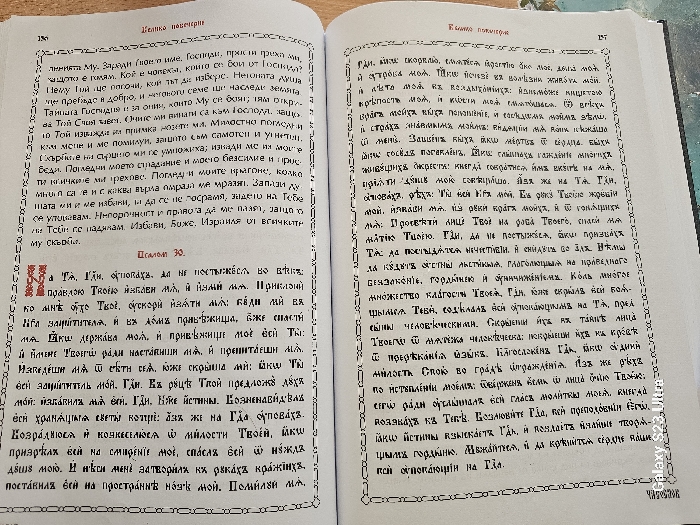 156
Велико повечерие
лицията Му. Заради Твоето име, Господи, прости греха ми,
защото е голям. Кой е човекът, който се бои от Господа?
Нему Той ще посочи, кой път да избере. Неговата душа
ще пребъде в добро, и неговото семе ще наследи земята.
Тайната Господня е за ония, които Му се боят; тям откри-
ва Той Своя завет. Очите ми винаги са към Господа, защо-
то Той извожда из примка нозете ми. Милостно погледни
към мене и ме помилуй, защото съм самотен и угнетен.
Скърбите на сърцето ми се умножиха; извади ме из моите
беди. Погледни моето страдание и моето безсилие и прос-
ти всичките ми грехове. Погледни моите врагове, колко
много са те и с каква върла омраза ме мразят. Запази ду-
шата ми и ме избави, та да се не посрамя, задето на Тебе
се уповавам. Непорочност и правота да ме пазят, защото
на Тебе се надявам. Избави, Боже, Израиля от всичките
му скърби.
Псалом 30.
На Тѧ̀, Гдⷭ҇и, оу҆пова́хъ, да не постыжꙋ́сѧ во вѣ́къ:
пра́вдою Твое́ю и҆зба́ви мѧ̀, и҆ и҆зми́ мѧ. Приклонѝ
ко мнѣ̀ оу҆́хо Твоѐ, оу҆скорѝ и҆з̾ѧ́ти мѧ̀: бꙋ́ди мѝ въ
Бг҃а защи́тителѧ, и҆ въ до́мъ прибѣ́жища, є҆́же спастѝ
мѧ̀. Ꙗ҆́кѡ держа́ва моѧ̀, и҆ прибѣ́жище моѐ є҆сѝ Ты̀:
и҆ и҆́мене Твоегѡ̀ ра́ди наста́виши мѧ̀, и҆ препита́еши мѧ̀.
И҆зведе́ши мѧ̀ ѿ сѣ́ти сеѧ̀, ю҆́же скры́ша мѝ: ꙗ҆́кѡ Ты̀
є҆сѝ защи́титель мо́й, Гдⷭ҇и. Въ рꙋ́цѣ Твоѝ предложꙋ̀ дꙋ́хъ
мо́й: и҆зба́вилъ мѧ̀ є҆сѝ, Гдⷭ҇и, Бж҃е и҆́стины. Возненави́дѣлъ
є҆сѝ хранѧ́щыѧ сꙋеты̑ вотщѐ: а҆́зъ же на Гдⷭ҇а оу҆пова́хъ.
Возра́дꙋюсѧ и҆ возвеселю́сѧ ѡ҆ ми́лости Твое́й, ꙗ҆́кѡ
призрѣ́лъ є҆сѝ на смире́нїе моѐ, спа́слъ є҆сѝ ѿ нꙋ́ждъ
дꙋ́шꙋ мою̀. И҆ нѣ́си менѐ затвори́лъ въ рꙋка́хъ вра́жїихъ,
поста́вилъ є҆сѝ на простра́ннѣ но́зѣ моѝ. Поми́лꙋй мѧ̀,
Велико повечерие
157
Гдⷭ҇и, ꙗ҆́кѡ скорблю̀, смѧте́сѧ ꙗ҆́ростїю ѻ҆́ко моѐ, дꙋша̀ моѧ̀
и҆ оу҆тро́ба моѧ̀. Ꙗ҆́кѡ и҆счезѐ въ болѣ́зни живо́тъ мо́й,
и҆ лѣ̑та моѧ̑ въ воздыха́нїихъ: и҆знемо́же нището́ю
крѣ́пость моѧ̀, и҆ кѡ́сти моѧ̑ смѧто́шасѧ. Ѿ всѣ́хъ
вра̑гъ мои́хъ бы́хъ поноше́нїе, и҆ сосѣ́дѡмъ мои̑мъ ѕѣлѡ̀,
и҆ стра́хъ зна́емымъ мои̑мъ: ви́дѧщїи мѧ̀ во́нъ бѣжа́ша
ѿ менє̀. Забве́нъ бы́хъ ꙗ҆́кѡ ме́ртвъ ѿ се́рдца, бы́хъ
ꙗ҆́кѡ сосꙋ́дъ погꙋбле́нъ. Ꙗ҆́кѡ слы́шахъ гажде́нїе мно́гихъ
живꙋ́щихъ ѡ҆́крестъ: внегда̀ собра́тисѧ и҆̀мъ вкꙋ́пѣ на мѧ̀,
прїѧ́ти дꙋ́шꙋ мою̀ совѣща́ша. А҆́зъ же на Тѧ̀, Гдⷭ҇и,
оу҆пова́хъ, рѣ́хъ: Ты̀ є҆сѝ Бг҃ъ мо́й. Въ рꙋкꙋ̀ Твоє́ю жре́бїи
моѝ, и҆зба́ви мѧ̀ и҆з̾ рꙋкѝ вра̑гъ мои́хъ, и҆ ѿ гонѧ́щихъ
мѧ̀: Просвѣтѝ лицѐ Твоѐ на раба̀ Твоего̀, спасѝ мѧ̀
ми́лостїю Твое́ю. Гдⷭ҇и, да не постыжꙋ́сѧ, ꙗ҆́кѡ призва́хъ
Тѧ̀: да постыдѧ́тсѧ нечести́вїи, и҆ сни́дꙋтъ во а҆́дъ. Нѣ̑мы
да бꙋ́дꙋтъ оу҆стны̀ льсти̑выѧ, глаго́лющыѧ на пра́веднаго
беззако́нїе, горды́нею и҆ оу҆ничиже́нїемъ. Ко́ль мно́гое
мно́жество бла́гости Твоеѧ̀, Гдⷭ҇и, ю҆́же скры́лъ є҆сѝ боѧ́-
щымсѧ Тебѐ, содѣ́лалъ є҆сѝ оу҆пова́ющымъ на Тѧ̀, пред
сы̑ны человѣ́ческими. Скры́еши и҆̀хъ въ та́йнѣ лица̀
Твоегѡ̀ ѿ мѧте́жа человѣ́ческа: покры́еши и҆̀хъ въ кро́вѣ
ѿ пререка́нїѧ ѧ҆зы́къ. Благослове́нъ Гдⷭ҇ь, ꙗ҆́кѡ оу҆дивѝ
ми́лость Свою̀ во гра́дѣ ѡ҆гражде́нїѧ. А҆́зъ же рѣ́хъ
во и҆зстꙋпле́нїи мое́мъ: ѿве́рженъ є҆́смь ѿ лица̀ ѻ҆́чїю Твоє́ю:
сегѡ̀ ра́ди оу҆слы́шалъ є҆сѝ гла́съ моли́твы моеѧ̀, внегда̀
воззва́хъ къ Тебѣ̀. Возлюби́те Гдⷭ҇а, всѝ преподо́бнїи є҆гѡ̀,
ꙗ҆́кѡ и҆́стины взыска́етъ Гдⷭ҇ь, и҆ воздае́тъ и҆зли́ше творѧ́-
щымъ горды́ню. Мꙋжа́йтесѧ, и҆ да крѣпи́тсѧ се́рдце ва́ше
всѝ оу҆пова́ющїи на Гдⷭ҇а.
Galaxy S23 Ultra